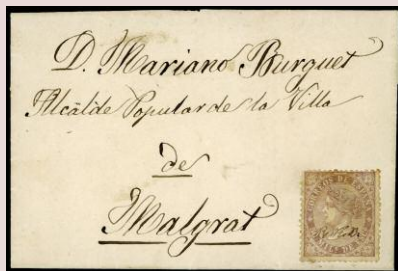 D. Mariano Burguet
Alcalde Popular de la Villa
de
Malgrat
CORREOS DE